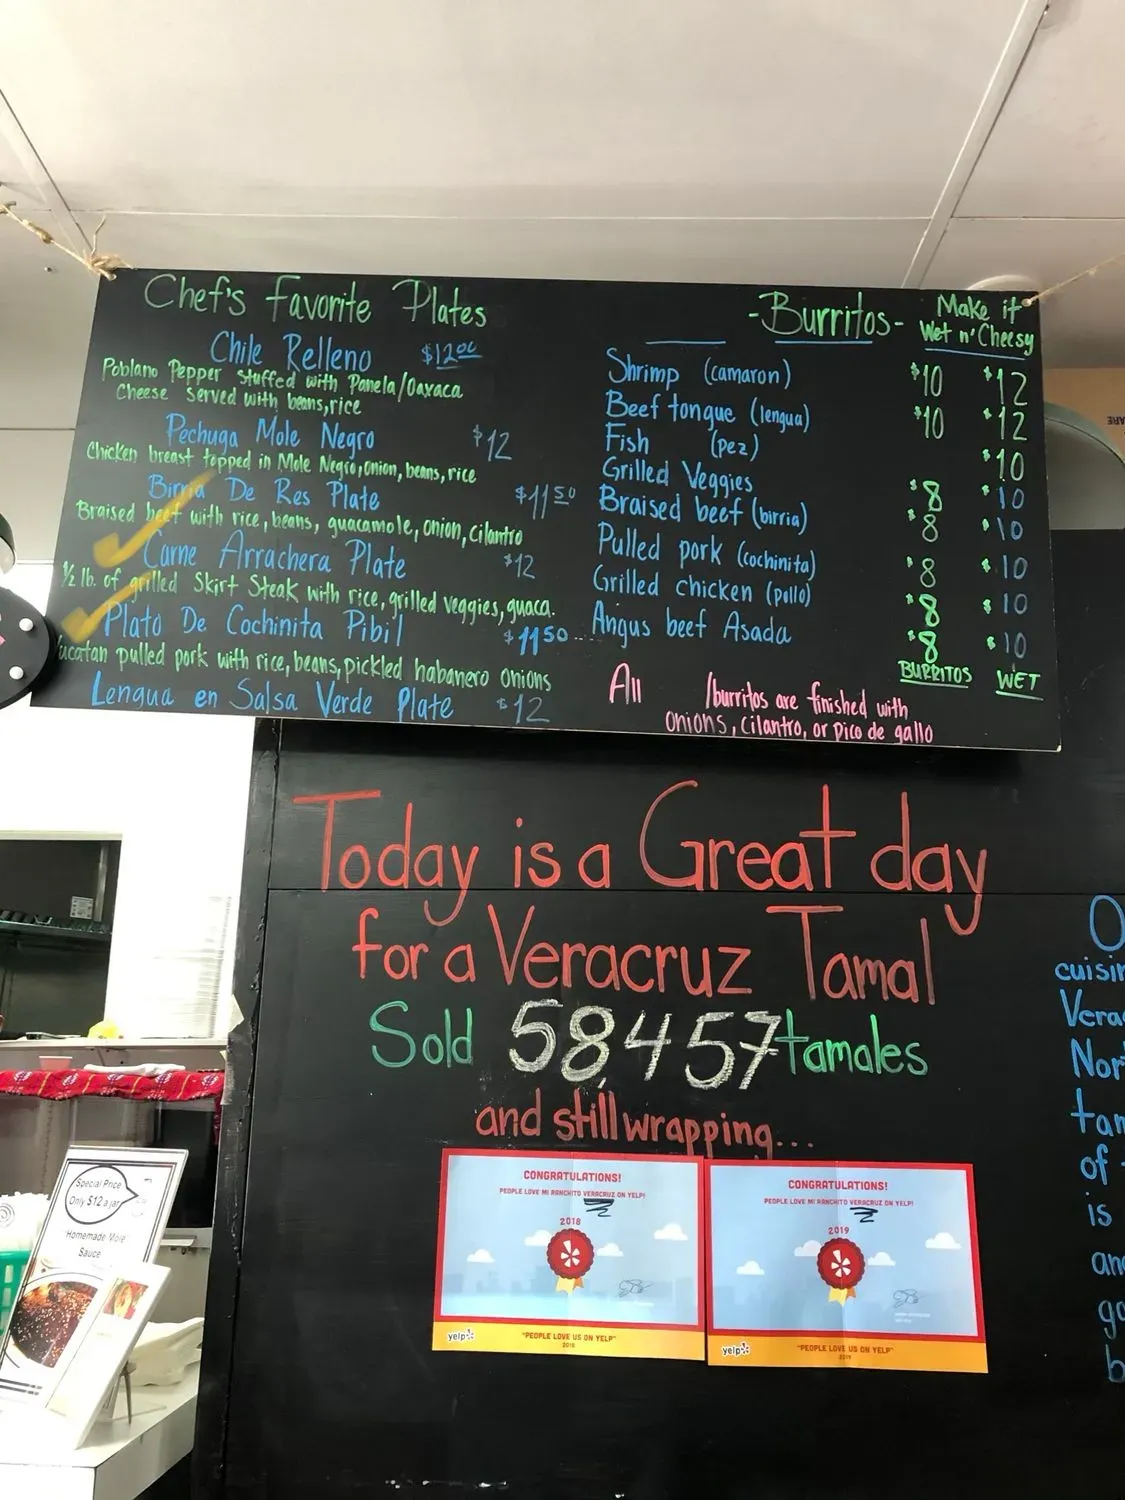 Chef's Favorite Plates
Chile Relleno $12.00
Poblano Pepper Stuffed with Panela/Oaxaca
Cheese served with beans, rice
Pechuga Mole Negro $12
Chicken breast topped in Mole Negro, onion, beans, rice
Birria De Res Plate $11.50
Braised beef with rice, beans, guacamole, onion, cilantro
Carne Arrachera Plate $12
1/2 lb. of grilled Skirt Steak with rice, grilled veggies, guaca.
Plato De Cochinita Pibil $11.50
ucatan pulled pork with rice, beans, pickled habanero onions
Lengua en Salsa Verde Plate $12
-Burritos-
Make it
Wet n' Cheesy
Shrimp (camaron) $10 $12
Beef tongue (lengua) $10 $12
Fish (pez) $10
Grilled Veggies $8 $10
Braised beef (birria) $8 $10
Pulled pork (cochinita) $8 $10
Grilled chicken (pollo) $8 $10
Angus beef Asada $8 $10
BURRITOS WET
All /burritos are finished with
onions, cilantro, or pico de gallo
Today is a Great day
for a Veracruz Tamal
Sold 58,457 tamales
and still wrapping...
CONGRATULATIONS!
PEOPLE LOVE MI RANCHITO VERACRUZ ON YELP!
2018
yelp
"PEOPLE LOVE US ON YELP"
2018
CONGRATULATIONS!
PEOPLE LOVE MI RANCHITO VERACRUZ ON YELP!
2019
yelp
"PEOPLE LOVE US ON YELP"
2019
O
cuisin
Vera
Nor
tam
of
is
an
go
b
Special Price
Only $12 a jar
Homemade Mole
Sauce